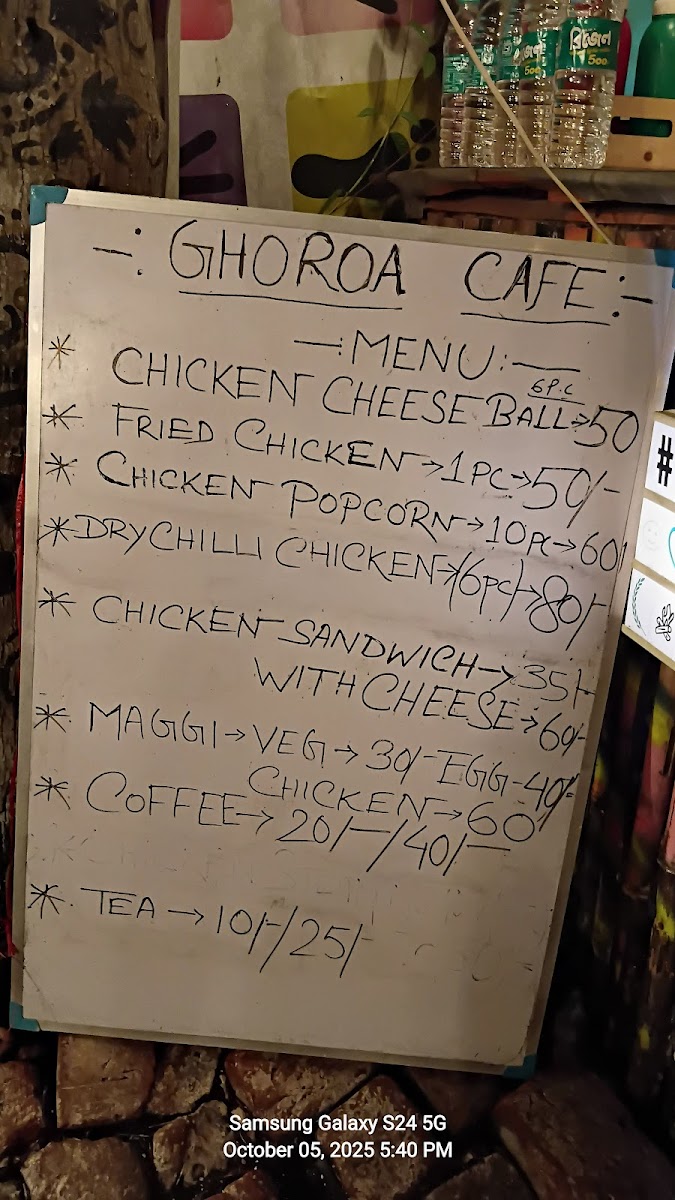 বিজেল
500
500
-: GHOROA CAFE :-
-: MENU :-
* CHICKEN CHEESE BALL 6P.C → 50
* FRIED CHICKEN → 1PC → 50/-
* CHICKEN POPCORN → 10PC → 60/-
* DRY CHILLI CHICKEN → (6PC) → 80/-
* CHICKEN SANDWICH → 35/-
WITH CHEESE → 60/-
* MAGGI → VEG → 30/- EGG - 40/-
CHICKEN → 60/-
* COFFEE → 20/- / 40/-
* TEA → 10/- / 25/-
#
Samsung Galaxy S24 5G
October 05, 2025 5:40 PM